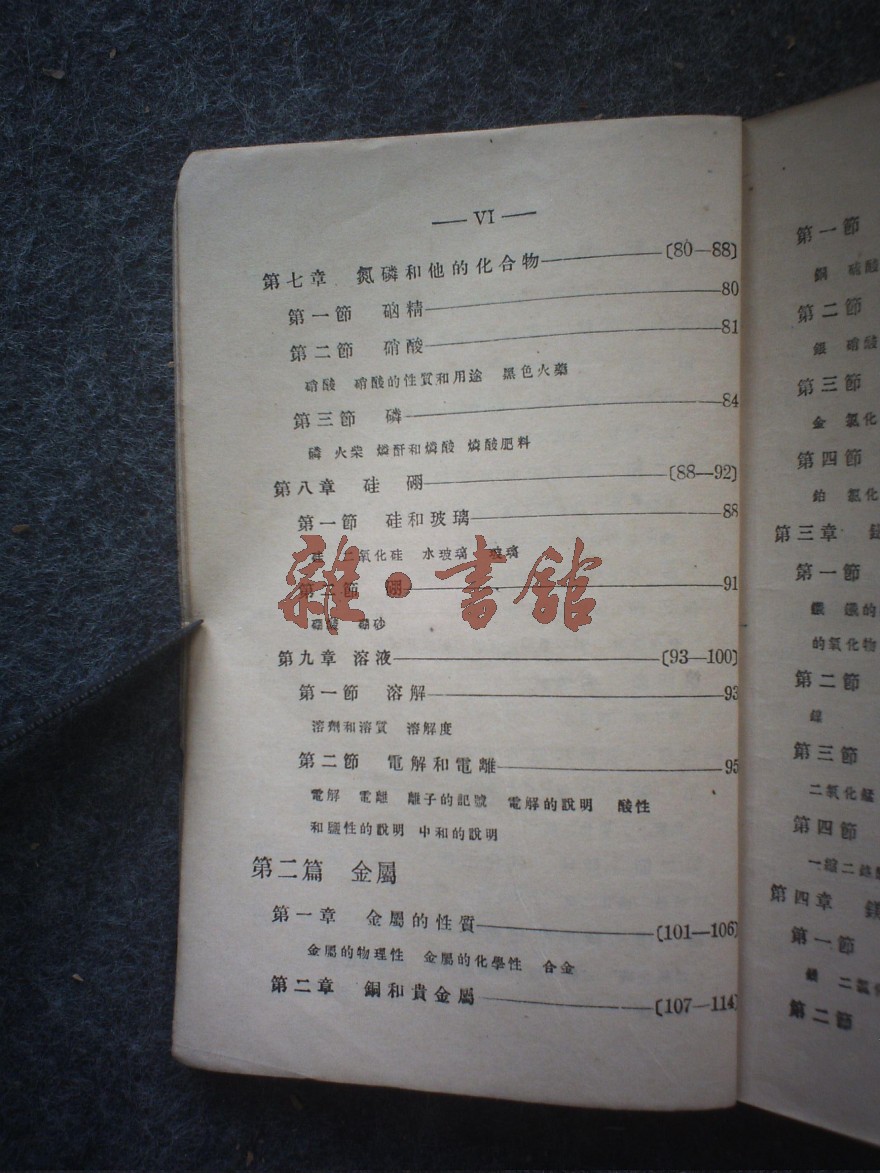 — VI —
第七章 氮磷和他的化合物——〔80—88〕
第一節 硇精——80
第二節 硝酸——81
硝酸 硝酸的性質和用途 黑色火藥
第三節 磷——84
磷 火柴 燐酐和燐酸 燐酸肥料
第八章 硅 硼——〔88—92〕
第一節 硅和玻璃——88
硅 二氧化硅 水玻璃 玻璃
第二節 硼——91
硼酸 硼砂
雜·書館
第九章 溶液——〔93—100〕
第一節 溶解——93
溶劑和溶質 溶解度
第二節 電解和電離——95
電解 電離 離子的記號 電解的說明 酸性
和鹽性的說明 中和的說明
第二篇 金屬
第一章 金屬的性質——〔101—106〕
金屬的物理性 金屬的化學性 合金
第二章 銅和貴金屬——〔107—114〕
第一節
銅 硫酸
第二節
銀 硝酸
第三節
金 氯化
第四節
鉑 氯化
第三章
第一節
的氧化物
第二節
第三節
二氧化錳
第四節
第四章
第一節
第二節